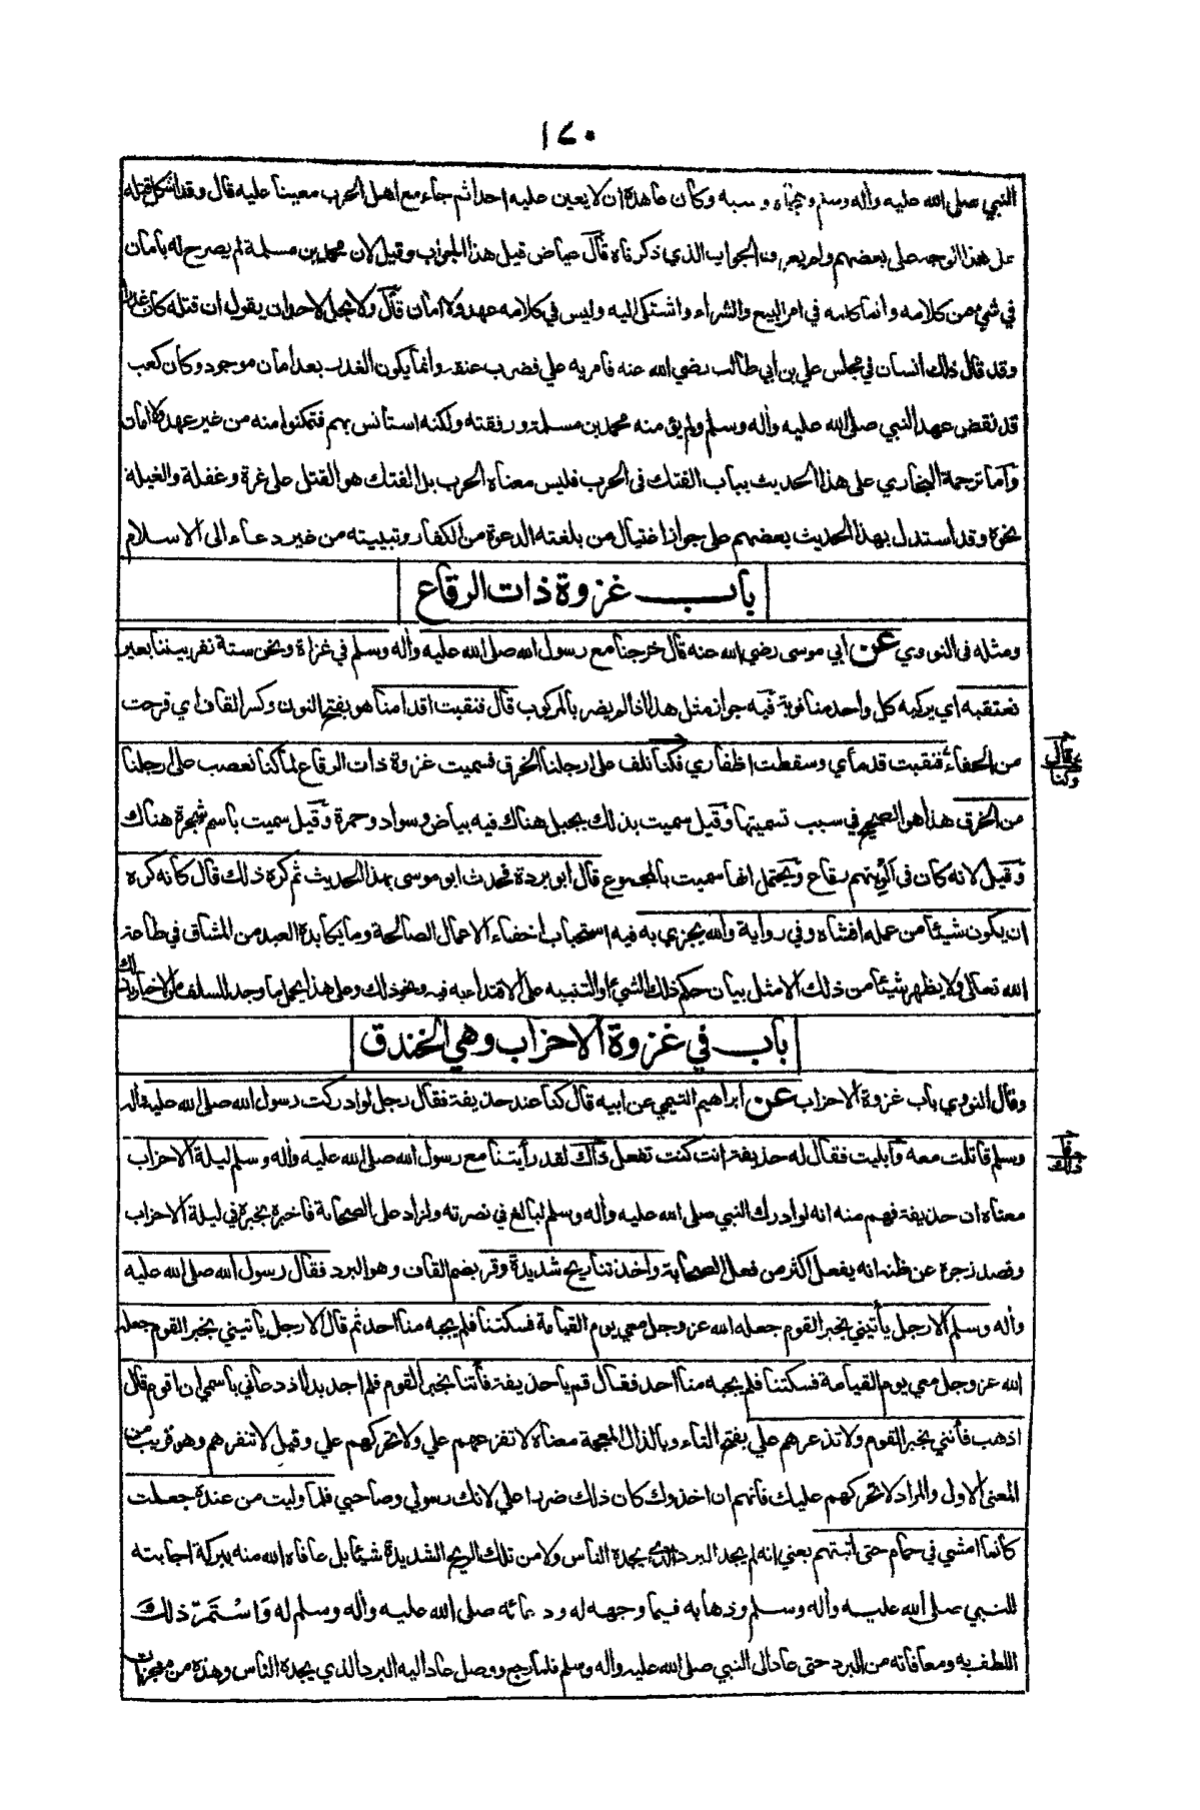 ١٧٠
النبي صلى الله عليه وأله وسلم وهجاه وسبه وكان عاهده ان لا يعين عليه احدا ثم جاء مع اهل الحرب معينا عليه قال وقد اشكل قتله
على هذا الوجه على بعضهم ولم يعرف الجواب الذي ذكرناه قال عياض قيل هذا الجواب وقيل لان محمد بن مسلمة لم يصرح له بأمان
في شيء من كلامه وانما كلمه في امر البيع والشراء واشتكى اليه وليس في كلامه عهد ولا امان قال ولا يحل لاحد ان يقول ان قتله كان غدرا
وقد قال ذلك انسان في مجلس علي بن ابي طالب رضي الله عنه فامر به علي فضرب عنقه وانما يكون الغدر بعد امان موجود وكان كعب
قد نقض عهد النبي صلى الله عليه وأله وسلم ولم يؤمنه محمد بن مسلمة ورفقته ولكنه استأنس بهم فتمكنوا منه من غير عهد ولا امان
وأما ترجمة البخاري على هذا الحديث بباب الفتك فى الحرب فليس معناه الحرب بل الفتك هو القتل على غرة وغفلة والغيلة
نحوه وقد استدل بهذا الحديث بعضهم على جواز اغتيال من بلغته الدعوة من الكفار وتبييته من غير دعاء الى الاسلام
باب غزوة ذات الرقاع
ومثله فى النووي عن ابي موسى رضي الله عنه قال خرجنا مع رسول الله صلى الله عليه وأله وسلم في غزاة ونحن ستة نفر بيننا بعير
نعتقبه اي يركبه كل واحد منا نوبة فيه جواز مثل هذا اذا لم يضر بالمركوب قال فنقبت اقدامنا هو بفتح النون وكسر القاف اي قرحت
من الحفاء فنقبت قدماي وسقطت اظفاري فكنا نلف على ارجلنا الخرق فسميت غزوة ذات الرقاع لما كنا نعصب على ارجلنا
قال
وكنا
من الخرق هذا هو الصحيح في سبب تسميتها وقيل سميت بذلك بجبل هناك فيه بياض وسواد وحمرة وقيل سميت باسم شجرة هناك
وقيل لانه كان فى ألويتهم رقاع ويحتمل انها سميت بالمجموع قال ابو بردة فحدث ابو موسى بهذا الحديث ثم كره ذلك قال كأنه كره
ان يكون شيئا من عمله افشاه وفي رواية والله يجزي به فيه استحباب اخفاء الاعمال الصالحة وما يكابده العبد من المشاق في طاعة
الله تعالى ولا يظهر شيئا من ذلك الا مثل بيان حكم ذلك الشيء او التنبيه على الاقتداء به فيه ونحو ذلك وعلى هذا يحمل ما وجد للسلف من الاخبار بذلك
باب في غزوة الاحزاب وهي الخندق
وقال النووي باب غزوة الاحزاب عن ابراهيم التيمي عن ابيه قال كنا عند حذيفة فقال رجل لو ادركت رسول الله صلى الله عليه وأله
وسلم قاتلت معه وأبليت فقال له حذيفة انت كنت تفعل ذاك لقد رأيتنا مع رسول الله صلى الله عليه وأله وسلم ليلة الاحزاب
ذلك
معناه ان حذيفة فهم منه انه لو ادرك النبي صلى الله عليه وأله وسلم لبالغ في نصرته ولزاد على الصحابة فاخبره بخبره في ليلة الاحزاب
وقصد زجره عن ظنه انه يفعل اكثر من فعل الصحابة واخذتنا ريح شديدة وقر بضم القاف وهو البرد فقال رسول الله صلى الله عليه
وأله وسلم الا رجل يأتيني بخبر القوم جعله الله عز وجل معي يوم القيامة فسكتنا فلم يجبه منا احد ثم قال الا رجل يأتيني بخبر القوم جعله
الله عز وجل معي يوم القيامة فسكتنا فلم يجبه منا احد فقال قم يا حذيفة فأتنا بخبر القوم فلم اجد بدا اذ دعاني باسمي ان اقوم قال
اذهب فأتني بخبر القوم ولا تذعرهم علي بفتح التاء وبالذال المعجمة معناه لا تفزعهم علي ولا تحركهم علي وقيل لا تنفرهم وهو قريب من
المعنى الاول والمراد لا تحركهم عليك فانهم ان اخذوك كان ذلك ضررا علي لانك رسولي وصاحبي فلما وليت من عنده جعلت
كأنما امشي في حمام حتى اتيتهم يعني انه لم يجد البرد الذي يجده الناس ولا من تلك الريح الشديدة شيئا بل عافاه الله منه ببركة اجابته
للنبي صلى الله عليه وأله وسلم وذهابه فيما وجهه له ودعائه صلى الله عليه وأله وسلم له وَاسْتَمَرّ ذلك
اللطف به ومعافاته من البرد حتى عاد الى النبي صلى الله عليه وأله وسلم فلما رجع ووصل عاد اليه البرد الذي يجده الناس وهذه من معجزات